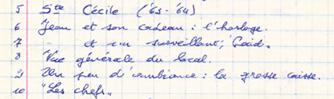 5 Ste Cécile ('63-'64)
6 Jean et son cadeau : l'horloge.
7 et un surveillant, Gaid.
8 Vue générale du local.
9 Un peu d'ambiance : la grosse caisse.
10 "Les chefs".